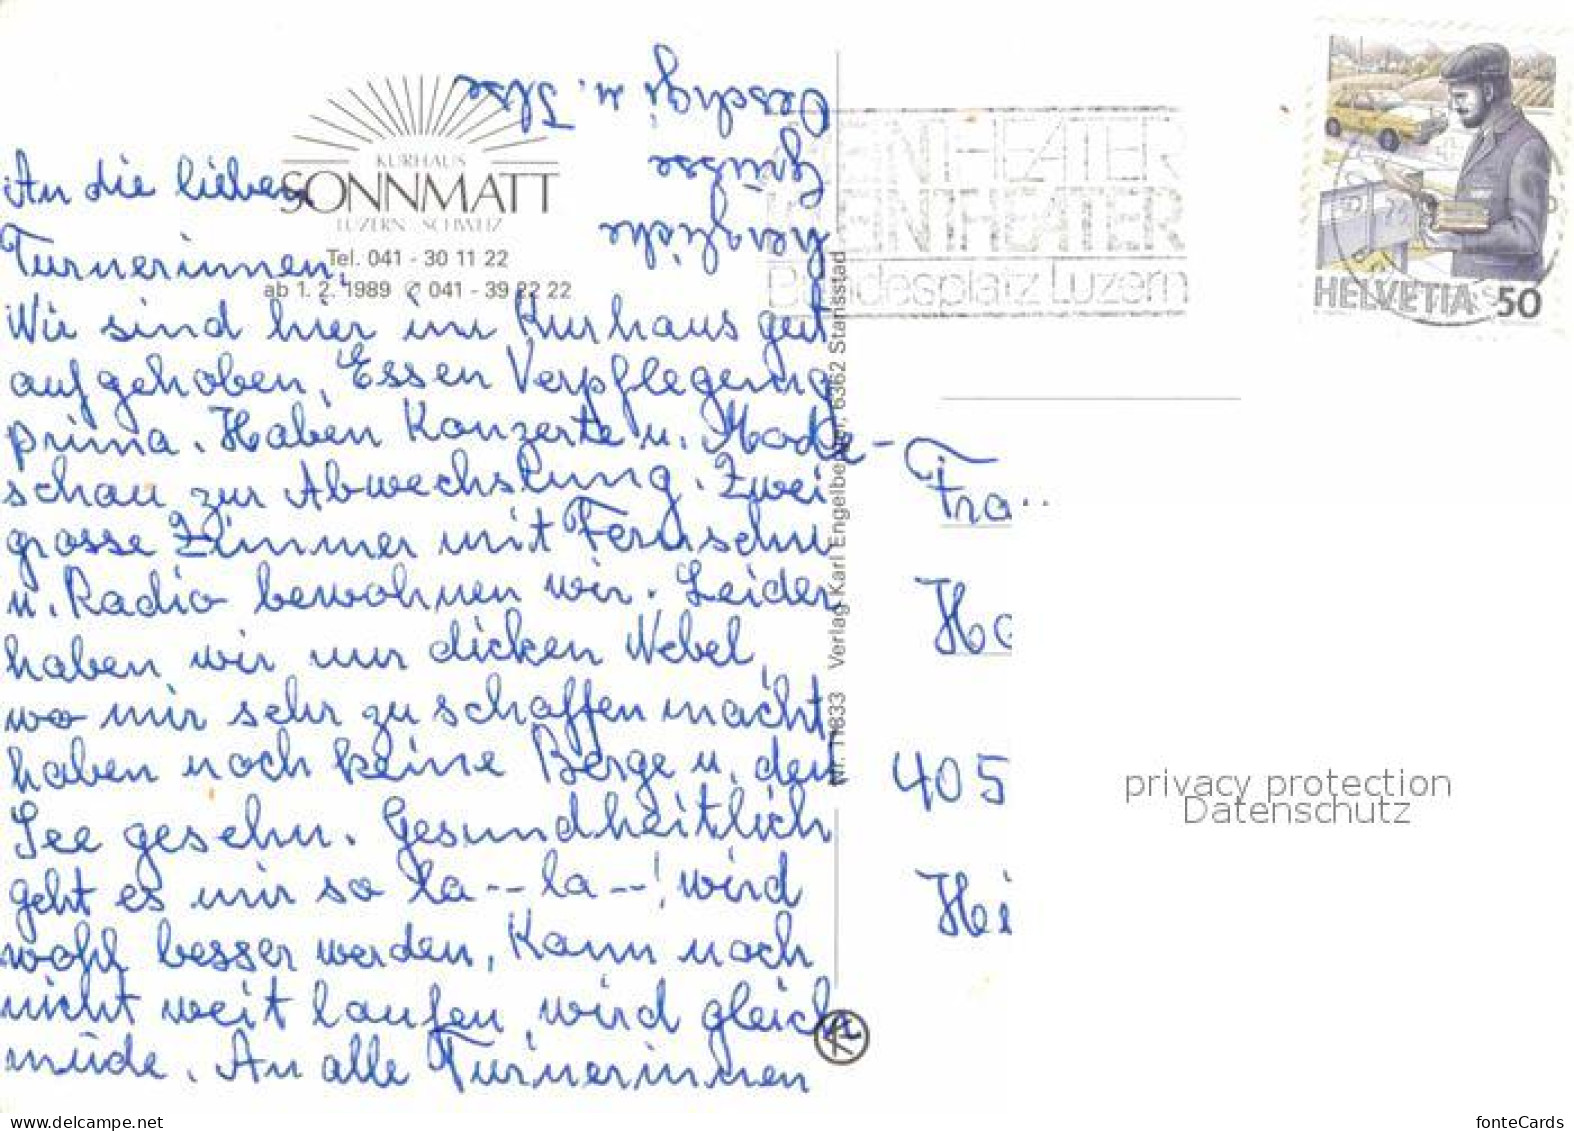 KURHAUS
SONNMATT
LUZERN SCHWEIZ
Tel. 041 - 30 11 22
ab 1. 2. 1989 ✆ 041 - 39 22 22
An die lieben
Turnerinnen,
Wir sind hier im Kurhaus gut
aufgehoben, Essen Verpflegung
prima. Haben Konzerte u. Mode-
schau zur Abwechslung. Zwei
grosse Zimmer mit Fernsehn
u. Radio bewohnen wir. Leider
haben wir nur dicken Nebel,
wo mir sehr zu schaffen macht,
haben noch keine Berge u. den
See gesehn. Gesundheitlich
geht es mir so la -- la --! wird
wohl besser werden, Kann noch
nicht weit laufen, wird gleich
müde. An alle Turnerinnen
herzliche
Grüsse
Oeschgi u. Ilse
Nr. 11833 Verlag Karl Engelberger, 6362 Stansstad
KLEINTHEATER
KLEINTHEATER
Bundesplatz Luzern
HELVETIA 50
Fra
405
Hei
privacy protection
Datenschutz
delcampe.net
fonteCards